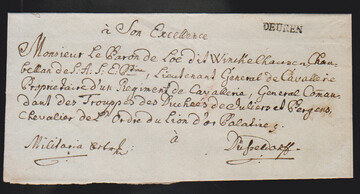 à Son Excellence
DEUREN
Monsieur Le Baron de Loë dit Winckelhausen Cham-
bellan de S. A. S. E. Ptne, Lieutenant General de Cavallerie
Proprietaire d'un Regiment de Cavallerie, General Coman-
dant des Trouppes des Duchées de Juliers et Bergens
Chevalier de L'Ordre du Lion d'or Palatin
à
Militaria Düsseldorff